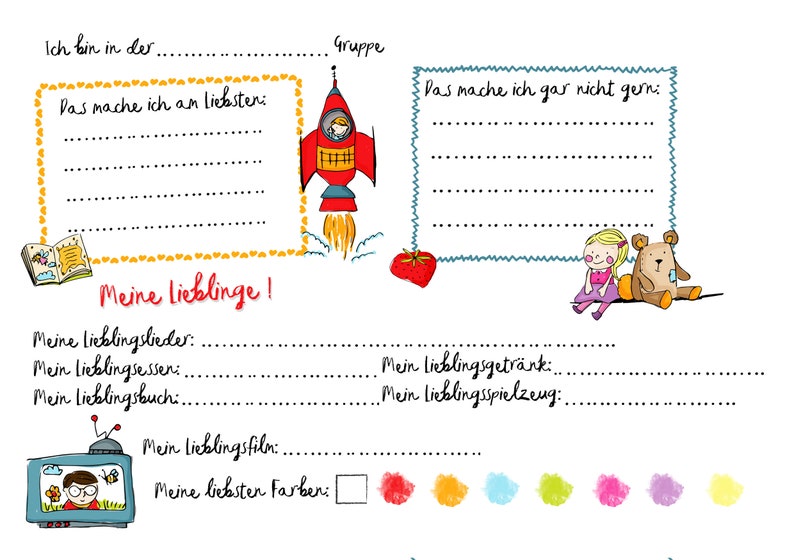 Ich bin in der ............................ Gruppe
Das mache ich am liebsten:
Das mache ich gar nicht gern:
Meine Lieblinge!
Meine Lieblingslieder:
Meine Lieblingsessen:
Mein Lieblingsgetränk:
Mein Lieblingsbuch:
Mein Lieblingsspielzeug:
Mein Lieblingsfilm:
Meine liebsten Farben: